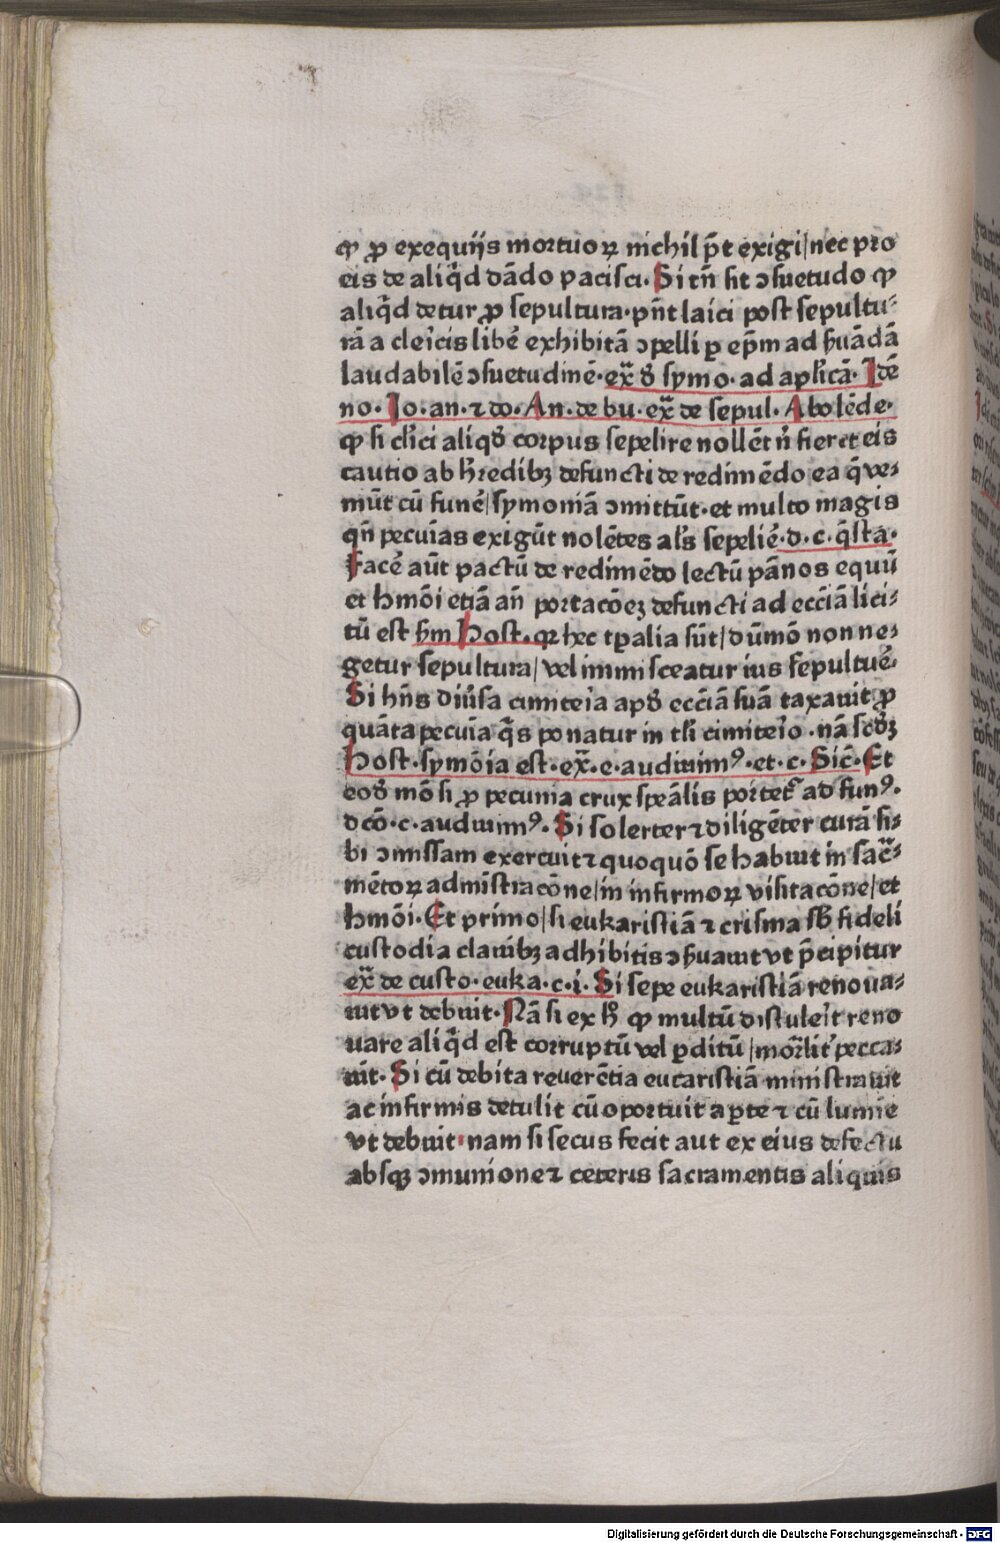 ꝙ ꝓ exequijs mortuoꝝ nichil p̄t exigi/nec pro
eis de aliq̇d dādo pacisci. Si tn̄ sit ↄsuetudo ꝙ
aliq̇d detur ꝓ sepultura·pn̄t laici post sepultu⸗
rā a cle'icis libe' exhibitā ↄpelli ꝑ ep̄m ad ẜuādā
laudabilē ↄsuetudinē·ex̄ ð symo·ad ap̄licā· Idē
no· Jo·an·⁊ do·An·de bu·ex̄ de sepul·Abolēde·
ꝙ si cl'ici aliqð corpus sepelire nollēt n̄ fieret eis
cautio ab h'redibꝫ defuncti de redimēdo ea q̄ ve⸗
niūt cū fune'/symoniā ↄmittūt·et multo magis
qn̄ pecuīas exigūt nolētes al's sepelie'·d·c·q̄sta·
Face' aūt pactū de redimēdo lectū pānos equū
et hmōi etiā an̄ portacōeꝫ defuncti ad eccīā lici⸗
tū est ẜm Host·qꝛ hec tꝑalia sūt/dūmō non ne⸗
getur sepultura/vel immisceatur ius sepultue'·
Si hn̄s diu'sa cimite'ia apð eccīā suā taxauit ꝓ
quāta pecuīa q̄s ponatur in tl'i cimite'io·nā scðꝫ
Host·symōia est·ex̄·e·audiuimꝰ·et·c·Sic̄·Et
eoð mō si ꝓ pecunia crux sp̄ealis portet' ad funꝰ·
d c̄o·c·audiuimꝰ· Si solerter ⁊ diligēter curā si⸗
bi ↄmissam exercuit ⁊ quoquō se habuit in sac̄⸗
mētoꝝ admīstracōne/in infirmoꝝ visitacōne/et
hmōi· Et primo/si eukaristiā ⁊ crisma sb̄ fideli
custodia clauibꝫ adhibitis ↄẜuauit vt p̄cipitur
ex̄ de custo·euka·c·i· Si sepe eukaristiā renoua⸗
uit vt debuit· Nā si ex h̄ ꝙ multū distule'it reno
uare aliq̇d est corruptū vel ꝑditū/mor̄lit' pecca⸗
uit· Si cū debita reuerētia eucaristiā ministrauit
ac infirmis detulit cū oportuit aꝑte ⁊ cū lumīe
vt debuit·nam si secus fecit aut ex eius defectu
absqꝫ ↄmunione ⁊ ceteris sacramentis aliquis
Digitalisierung gefördert durch die Deutsche Forschungsgemeinschaft · DFG